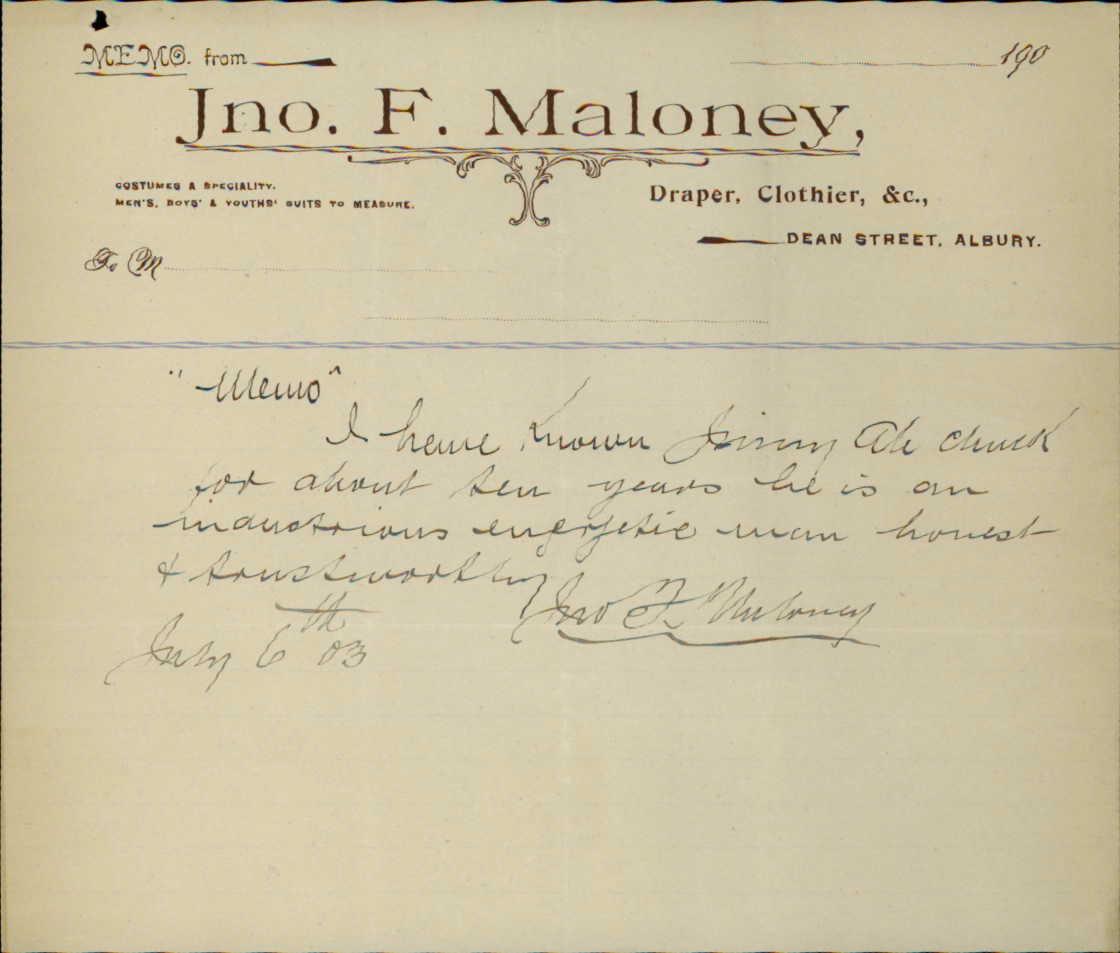 MEMO. from
190
Jno. F. Maloney,
COSTUMES A SPECIALITY.
MEN'S, BOYS' & YOUTHS' SUITS TO MEASURE.
Draper, Clothier, &c.,
DEAN STREET, ALBURY.
To M
"Memo"
I have known Jimmy Ah Chuck
for about ten years he is an
industrious energetic man honest
& trustworthy
Jno F. Maloney
July 6th 03